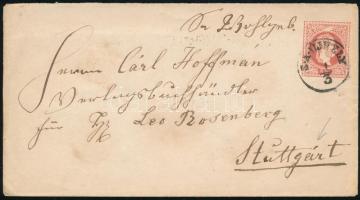 Sr Wohlgeb.
Herrn Carl Hoffman
Verlagsbuchhändler
für Leo Rosenberg
Stuttgárt